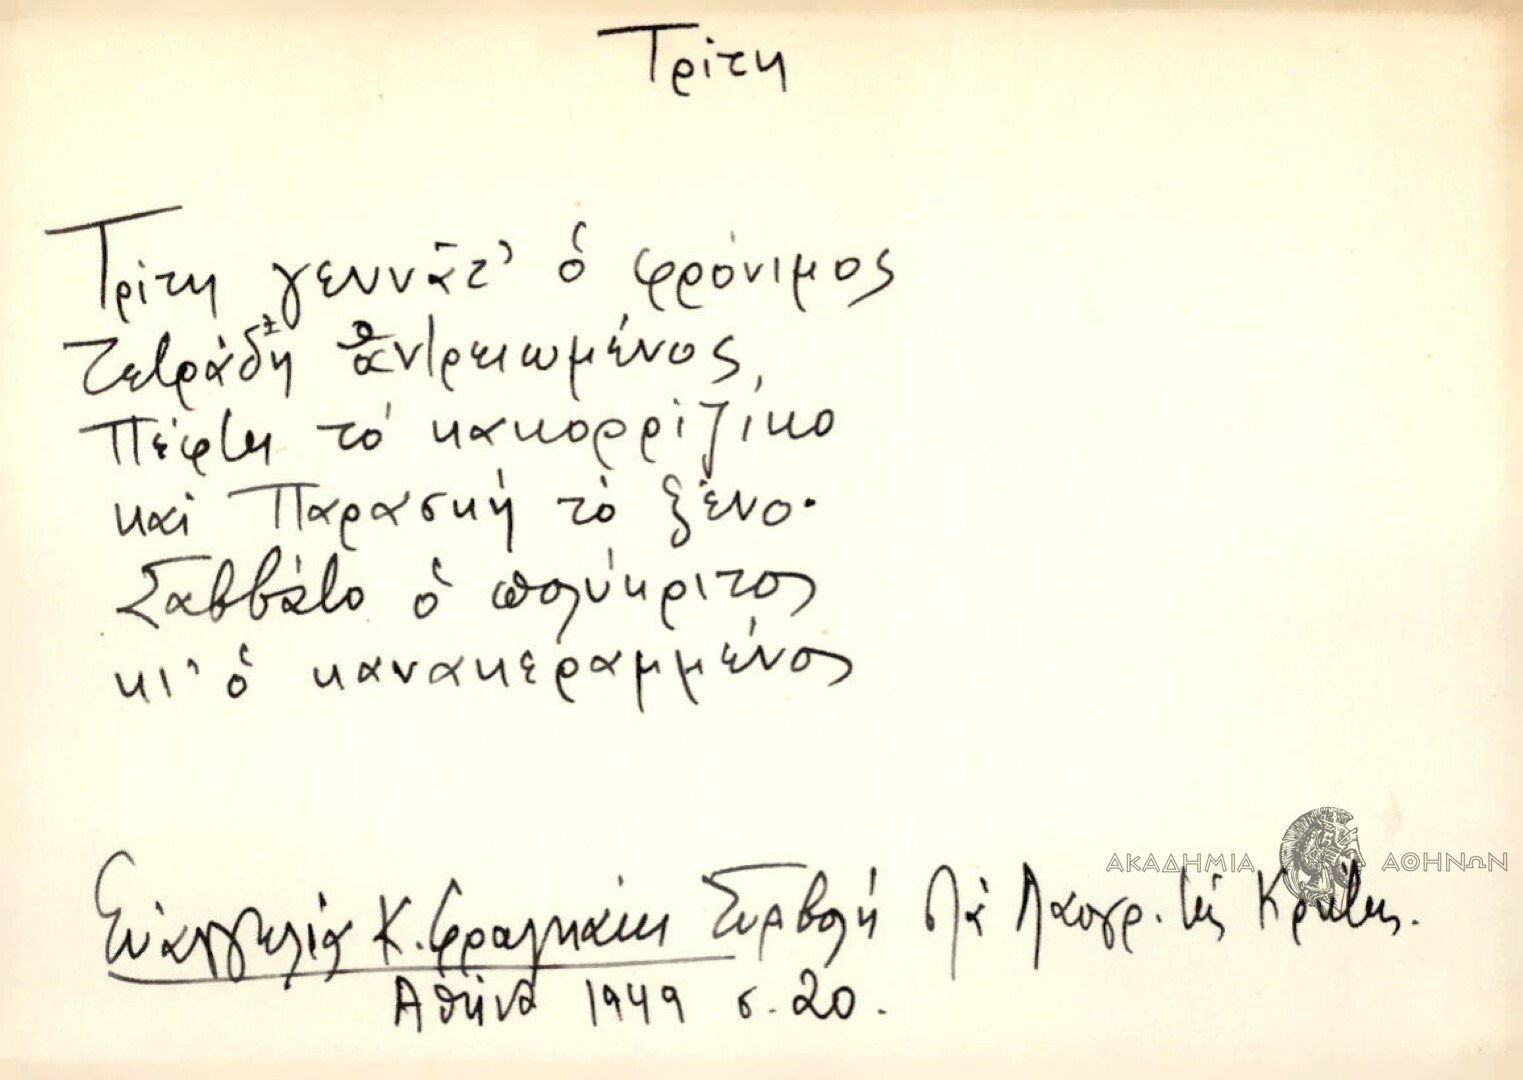 Τρίτη
Τρίτη γεννᾶτ' ὁ φρόνιμος
Τετράδη ἀντρειωμένος,
Πέφτη τό κακορρίζικο
καί Παρασκή τό ξένο.
Σαββάτο ὁ πολύκριτος
κι' ὁ κανακεραμμένος
ΑΚΑΔΗΜΙΑ ΑΘΗΝΩΝ
Εὐαγγελία Κ. Φραγκάκι Συμβολή στά Λαογρ. τῆς Κρήτης.
Ἀθήνα 1949 σ. 20.